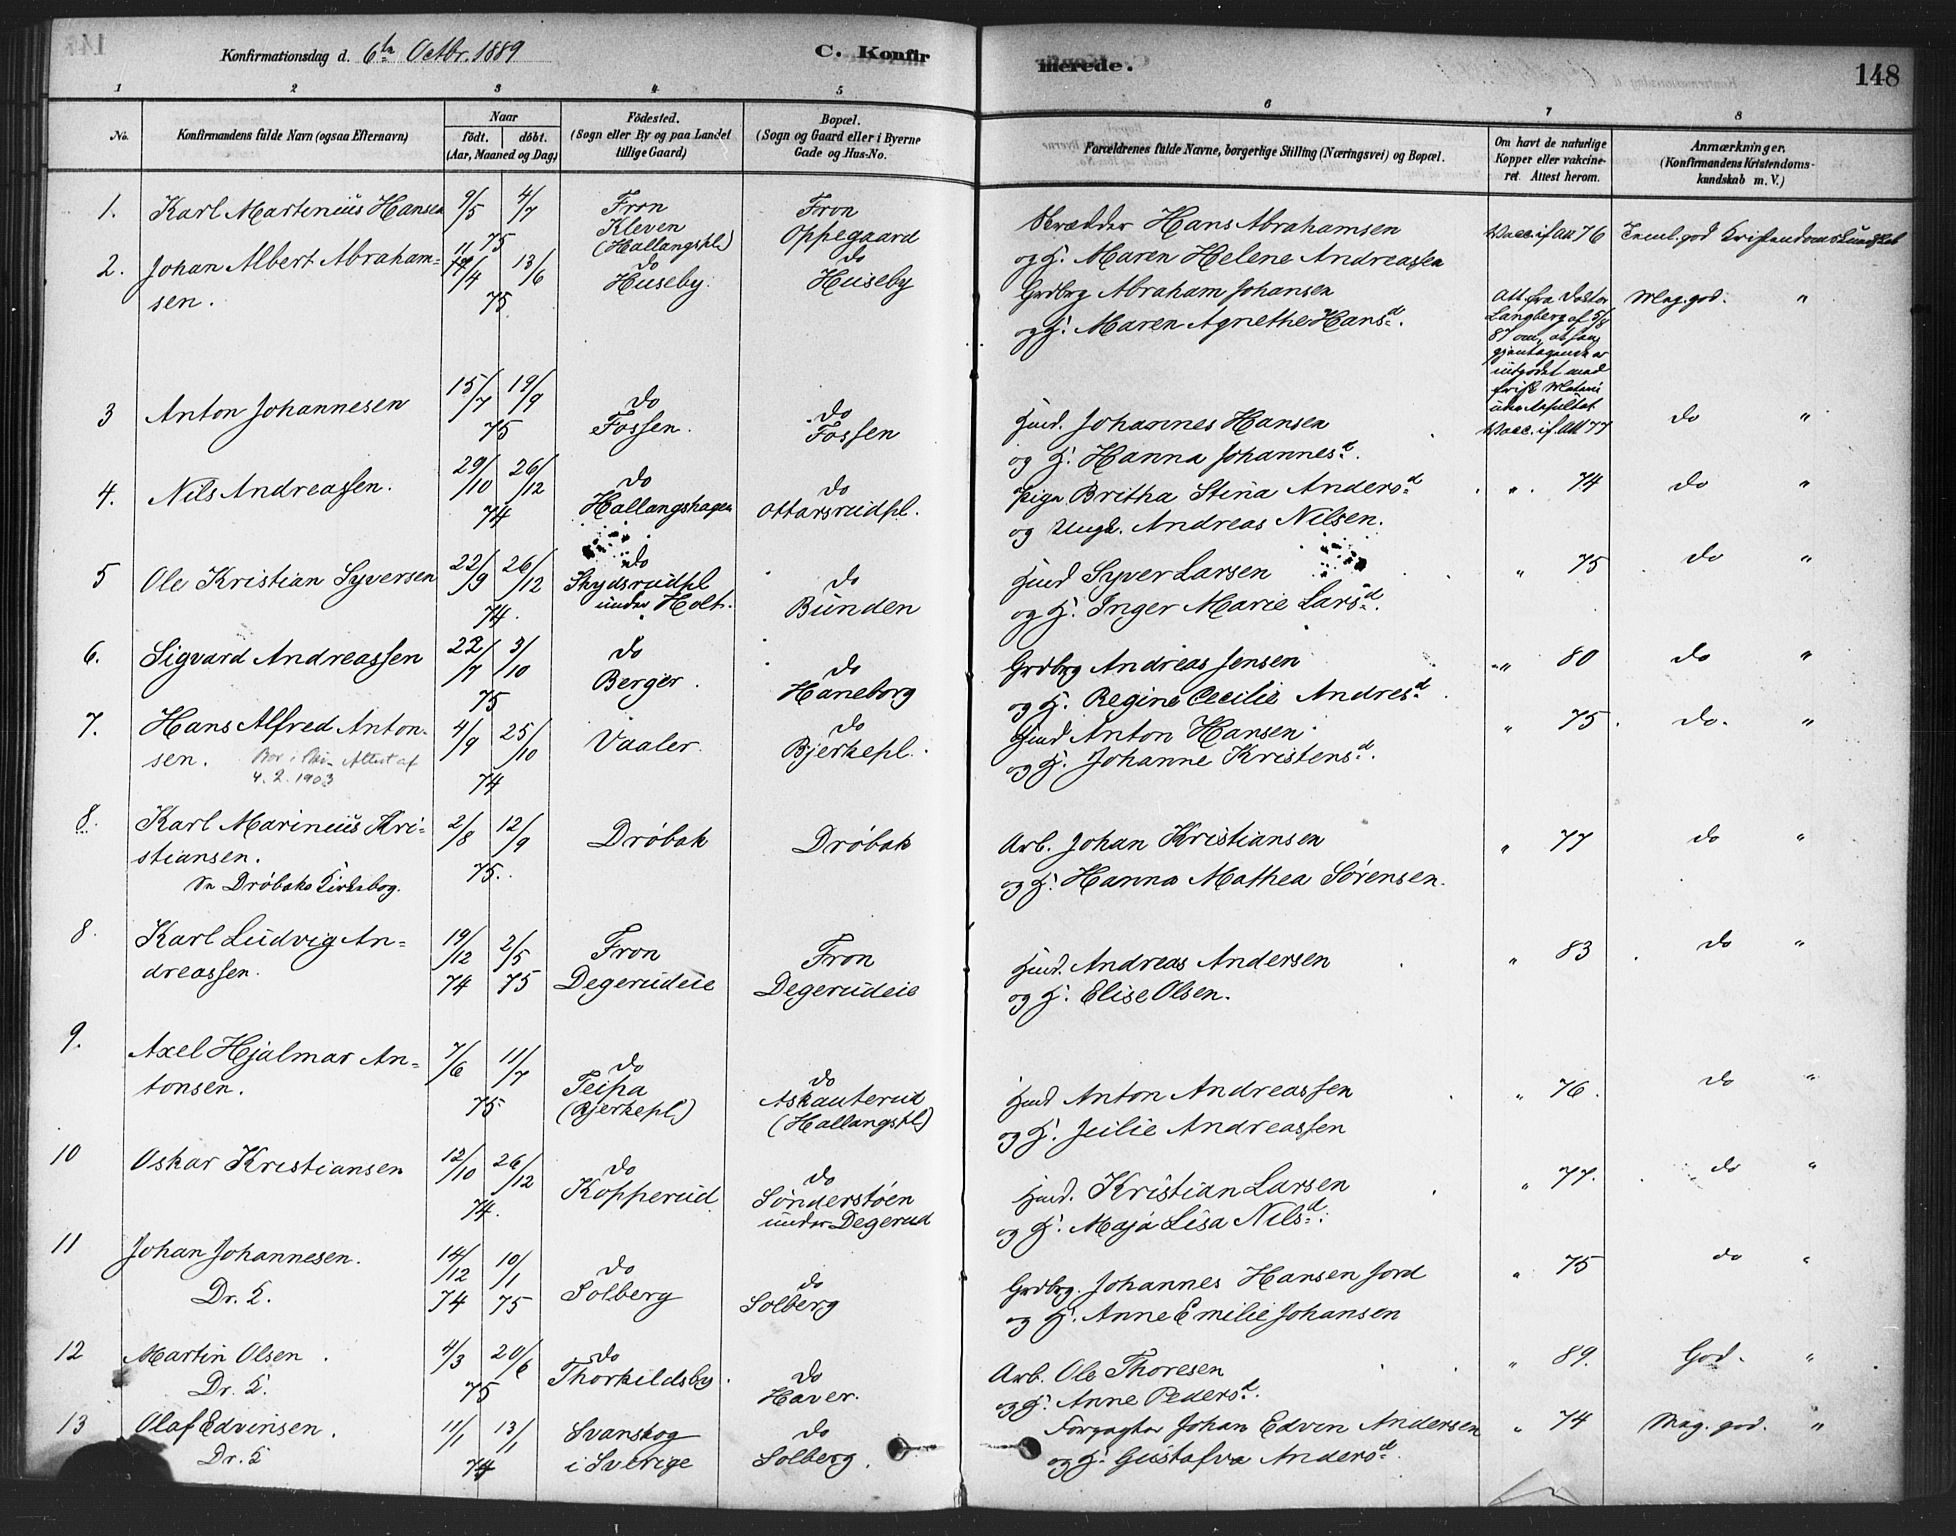 Konfirmationsdag d. 6te Octbr. 1889 C. Konfirmerede. 148
1 2 3 4 5 6 7 8
No. Konfirmandens fulde Navn (ogsaa Efternavn) Naar födt. döbt. (Aar, Maaned og Dag) Födested. (Sogn eller By og paa Landet tillige Gaard) Bopæl. (Sogn og Gaard eller i Byerne Gade og Hus-No. Forældrenes fulde Navne, borgerlige Stilling (Næringsvei) og Bopæl. Om havt de naturlige Kopper eller vakcineret. Attest herom. Anmærkninger. (Konfirmandens Kristendomskundskab m. V.)
1. Karl Martinius Hansen 9/5 4/7 75 Fron Kleven (Hallangspl) Fron Oppegaard Skrædder Hans Abrahamsen
og H. Maren Helene Andreassen Vacc. if. Att 76 Teml. god Kristendomskundskab
2. Johan Albert Abraham-
sen. 11/4 13/6 75 do Huseby. do Huseby Grdbrg Abraham Johansen
og H. Maren Agnethe Hansd. Att. fra Doktor
Langberg af 5/8
87 om, at han
gjentagende er
Mag. god. "
3 Anton Johannesen 15/7 19/9 75 do Fossen. do Fossen Husd. Johannes Hansen
og H. Hanna Johannesd. Vacc. if. Att 77 do "
4. Nils Andreassen. 29/10 26/12 74 do Hallangshagen do Ottarsrudpl. Pige Britha Stina Andersd
og Ungk. Andreas Nilsen. " 74 do "
5 Ole Kristian Syversen 22/9 26/12 74. do Skydsrudpl under Holt. do Bunden Husd Syver Larsen
og H. Inger Marie Larsd. " 75 do "
6. Sigvard Andreassen 22/7 3/10 75 do Berger. do Haneborg Grdbrg Andreas Jensen
og H. Regine Cecilie Andresd. " 80 do "
7. Hans Alfred Anton-
sen. Attest af
4.2.1903 4/9 25/10 74 Vaaler. do Bjerkepl. Husd Anton Hansen.
og H. Johanne Kristensd. " 75. do. "
8. Karl Marinius Kri-
stiansen.
Se Drøbaks Kirkebog. 2/8 12/9 75. Drøbak Drøbak Arb. Johan Kristiansen
og H. Hanna Mathea Sørensen. " 77 do "
8. Karl Ludvig An-
dreassen. 19/12 74 2/5 75 Fron Degerudeie Fron Degerudeie Husd. Andreas Andersen
og H. Elise Olsen. " 83 do "
9. Axel Hjalmar An-
tonsen. 7/6 11/7 75 do Teipa (Bjerkepl) do Askauterud (Hallangspl) Husd Anton Andreassen
og H. Julie Andreassen " 76. do "
10 Oskar Kristiansen 12/10 26/12 74. do Kopperud do Sønderstøen under Degerud Husd. Kristian Larsen
og H. Maja Lisa Nilsd. " 77. do "
11 Johan Johannesen.
Dr. K. 14/12 74 10/1 75 do Solberg do Solberg Grdbrg. Johannes Hansen Jord
og H. Anne Emilie Johansen " 75 do "
12 Martin Olsen.
Dr. K. 4/3 20/6 75 do Thorkildsby. do Haver. Arb. Ole Thoresen
og H. Anne Pedersd. " 89. God. "
13 Olaf Edvinsen.
Dr. K 11/1 13/1 74 Svanskog i Sverige do Solberg. Forpagter Johan Edvin Andersen
og H. Gustafva Andersd. " 74 Mag. god. "